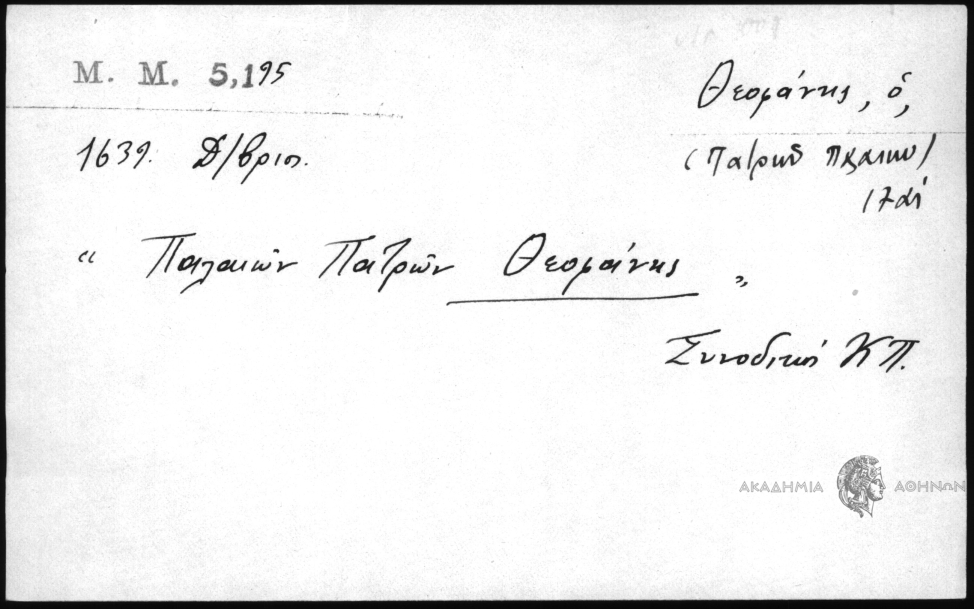 Μ. Μ. 5,195
Θεοφάνης, ὁ,
1639. Δ/βριος.
(Πατρῶν Παλαιῶν)
17 αἰ
“ Παλαιῶν Πατρῶν Θεοφάνης „
Συνοδικὸς ΚΠ.
ΑΚΑΔΗΜΙΑ ΑΘΗΝΩΝ